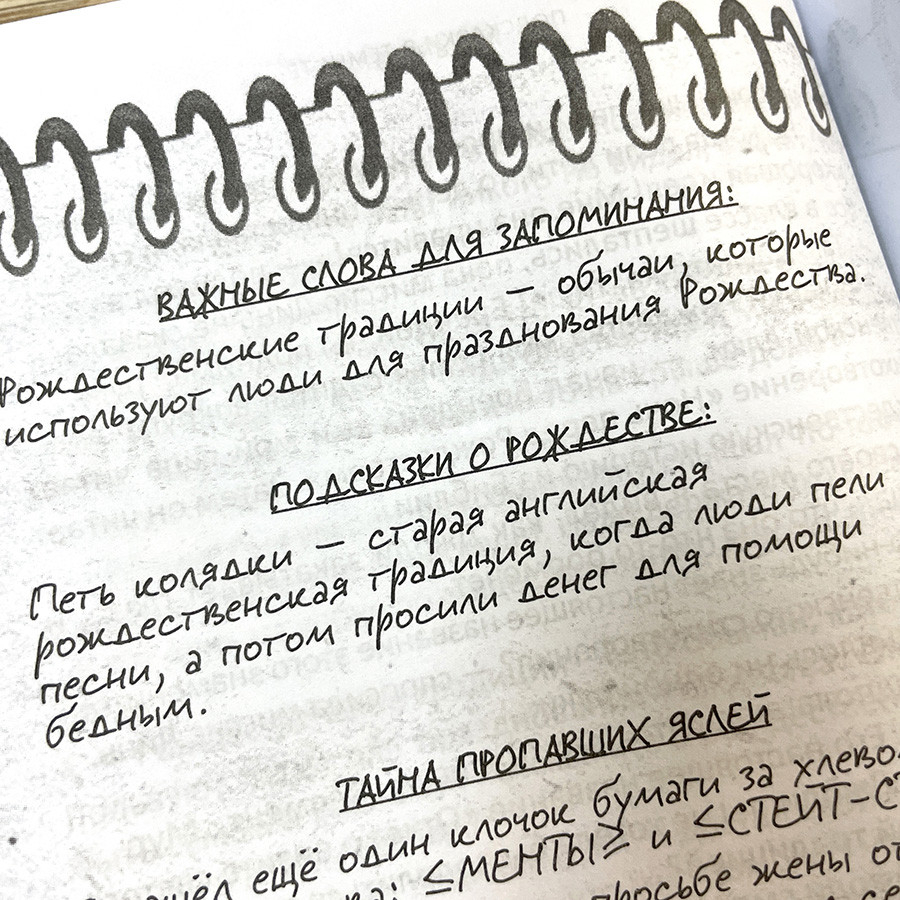 ВАЖНЫЕ СЛОВА ДЛЯ ЗАПОМИНАНИЯ:
Рождественские традиции – обычаи, которые
используют люди для празднования Рождества.
ПОДСКАЗКИ О РОЖДЕСТВЕ:
Петь колядки – старая английская
рождественская традиция, когда люди пели
песни, а потом просили денег для помощи
бедным.
ТАЙНА ПРОПАВШИХ ЯСЛЕЙ
ещё один клочок бумаги за
≤МЕНТЫ≥ и ≤СТЕЙТ-СТ
просьбе жены